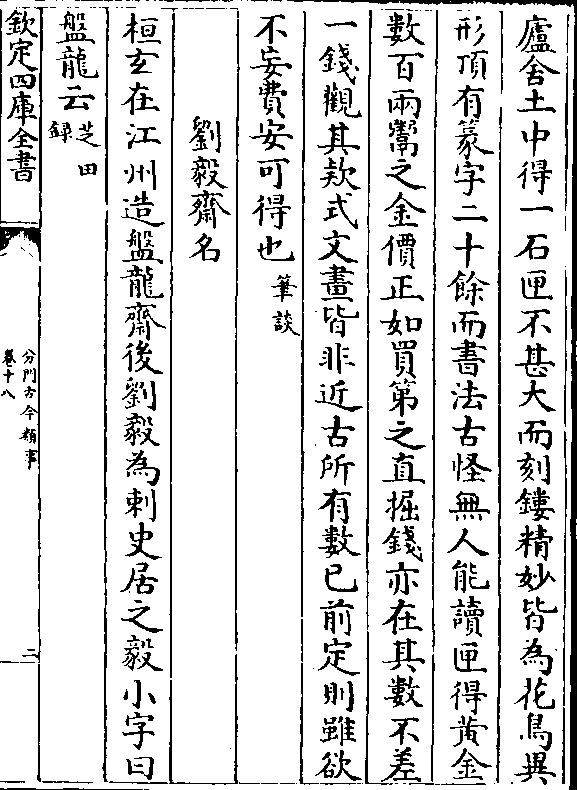 廬舍土中得一石匣不甚大而刻鏤精妙皆為花鳥異
形頂有篆字二十餘而書法古怪無人能讀匣得黃金
數百兩鬻之金價正如買第之直掘錢亦在其數不差
一錢觀其欵式文畫皆非近古所有數已前定則雖欲
不妄費安可得也筆談
劉毅齋名
桓玄在江州造盤龍齋後劉毅為刺史居之毅小字曰
盤龍云芝田錄
欽定四庫全書
分門古今類事
卷十八
二